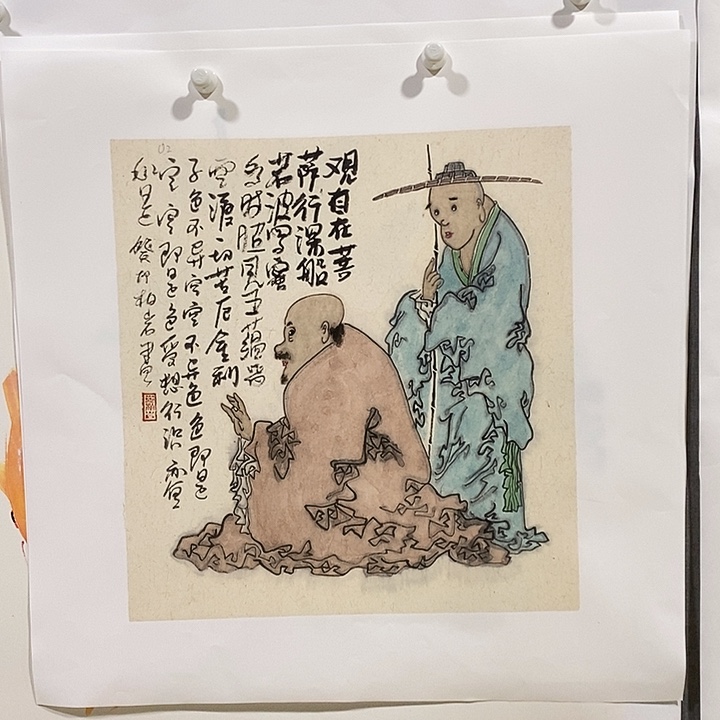 观自在菩
萨行深般
若波罗蜜
多时照见五蕴皆
空渡一切苦厄舍利
子色不异空空不异色色即是
空空即是色受想行识亦复
如是 癸卯柏岩书
02